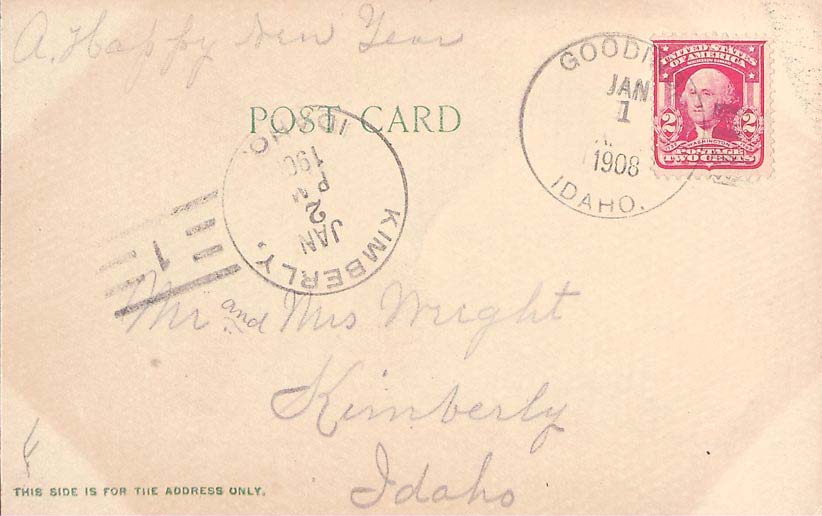 A. Happy New Year
POST CARD
GOODI
JAN
1
1908
IDAHO.
UNITED STATES
OF AMERICA
2 2
WASHINGTON
POSTAGE
TWO CENTS
KIMBERLY,
JAN
2
PM
190
IDAHO.
1
Mr and Mrs Wright
Kimberly
Idaho
THIS SIDE IS FOR THE ADDRESS ONLY.